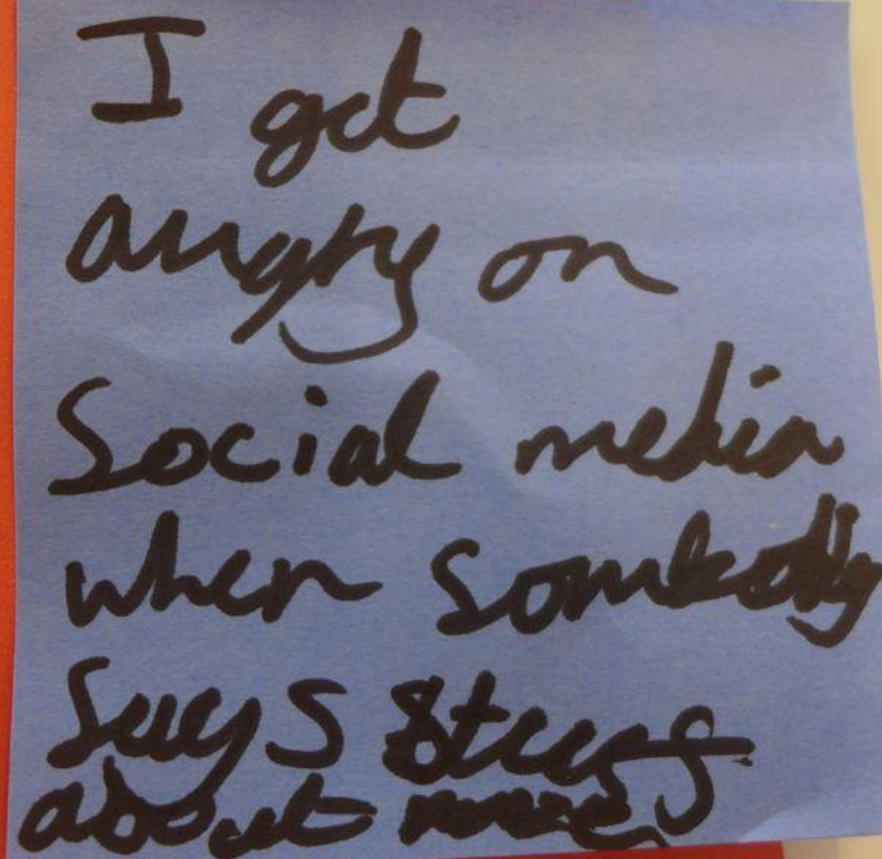 I get
angry on
Social media
when Sombody
Says Stuff
about me